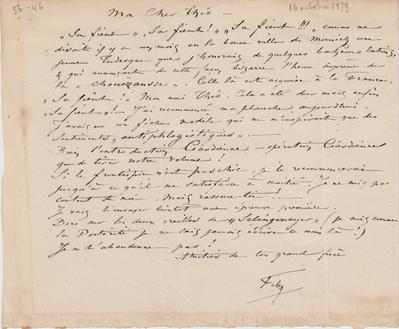 56-46
16 octobre 1879
Ma Cher Théo -
"Sa fient", "Sa fient!", "Sa fient!!!", comme me
disait il y a un mois en la bonne ville de Munich une
jeune Tudesque que j'honorais de quelques baisers latins,
& qui annonçait de cette façon bizarre l'heure suprême de
la "
". Celle là est acquise à la France.
Sa fient! Mon ami Théo. Cela a été dur mais enfin
Sa fient. J'ai recommencé ma planche aujourd'hui.
J'avais un fichu modèle qui ne m'inspirait que des
sentiments "antiphlogistiques". -
Bon l'introduction
opération
que de tirer notre volume!
Si le frontispice n'est pas chic, je le recommencerai
jusqu'à ce qu'il me satisfasse à moitié, je ne suis pas
content de moi. Mais rassure-toi. -
Je vais t'envoyer bientôt une épreuve première.
Doré sur les deux oreilles de "
" (je suis comme
la Postérité je ne sais jamais écrire ce nom là!)
Je ne t'abandonne pas!
Amitiés de ton grand frère
Fély